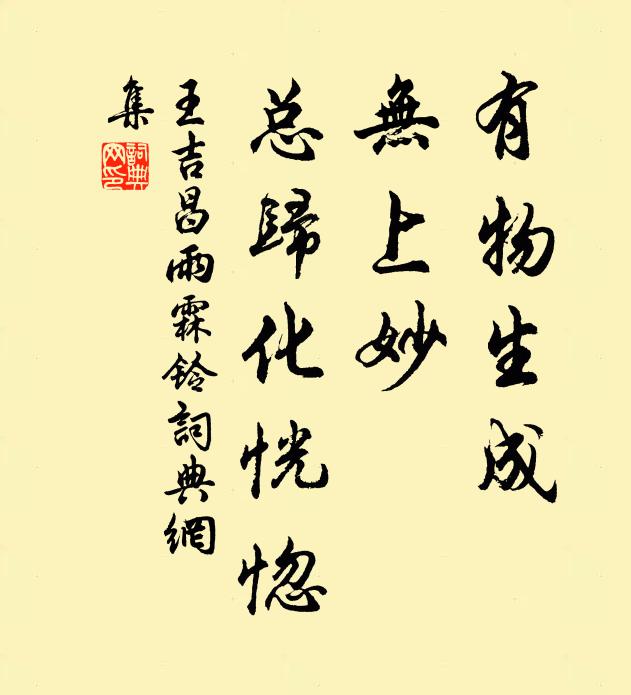 有物生成
無上妙
总歸化恍惚
王吉昌雨霖鈴詞典網
集
詞典網印